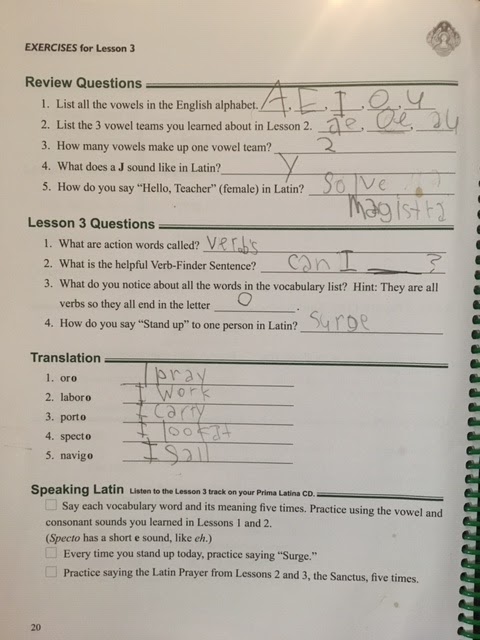 EXERCISES for Lesson 3
Review Questions
1. List all the vowels in the English alphabet. A, E, I, O, U
2. List the 3 vowel teams you learned about in Lesson 2. ae, oe, au
3. How many vowels make up one vowel team? 2
4. What does a J sound like in Latin? Y
5. How do you say “Hello, Teacher” (female) in Latin? Solve
Magistra
Lesson 3 Questions
1. What are action words called? verbs
2. What is the helpful Verb-Finder Sentence? Can I ____?
3. What do you notice about all the words in the vocabulary list? Hint: They are all
verbs so they all end in the letter O.
4. How do you say “Stand up” to one person in Latin? Surge
Translation
1. oro I pray
2. laboro I work
3. porto I carry
4. specto I look at
5. navigo I sail
Speaking Latin Listen to the Lesson 3 track on your Prima Latina CD.
Say each vocabulary word and its meaning five times. Practice using the vowel and
consonant sounds you learned in Lessons 1 and 2.
(Specto has a short e sound, like eh.)
Every time you stand up today, practice saying “Surge.”
Practice saying the Latin Prayer from Lessons 2 and 3, the Sanctus, five times.
20